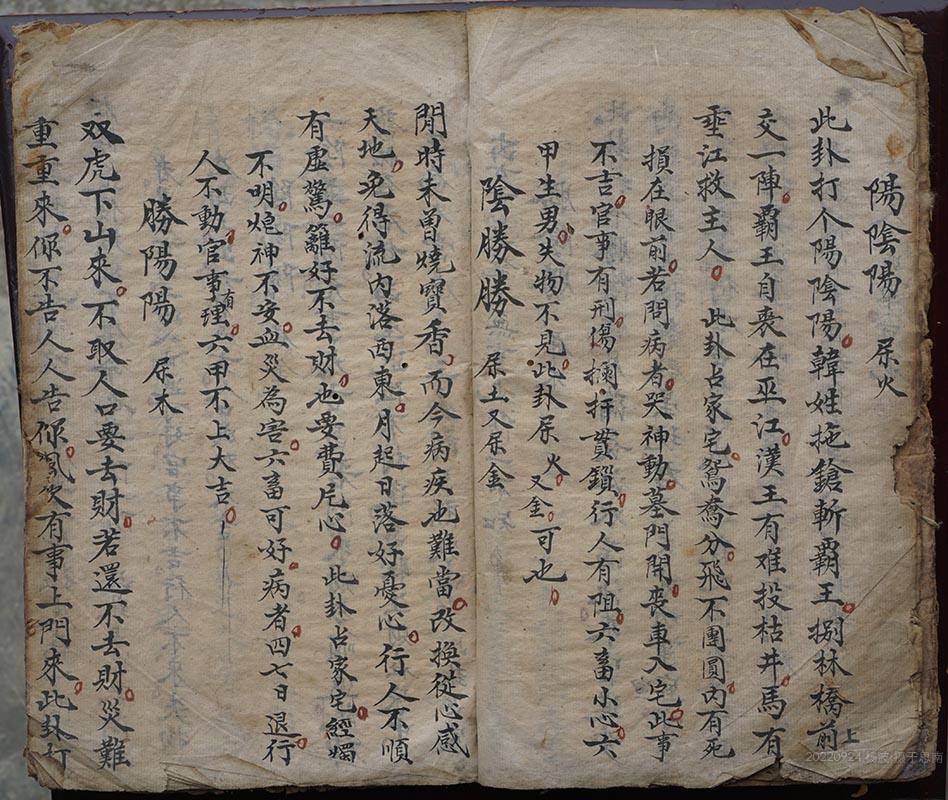 陽陰陽 屬火
此卦打个陽陰陽韓姓拖鎗斬霸王捌林橋前上
交一陣霸王自喪在巫江漢王有难投枯井馬有
垂江救主人 此卦占家宅鴛鴦分飛不團圓內有死
損在眼前若問病者哭神動墓門開喪車入宅此事
不吉官事有刑傷攔扞貫鎖行人有阻六畜小心六
甲生男失物不見此卦屬火又金可也
陰勝勝 屬土又屬金
閒時未曾燒寶香而今病疾也難當改換從心感
天地免得流內落西東月起日落好憂心行人不順
有虛驚籬好不去財也要費尽心 此卦占家宅經
不明炮神不安血災為害六畜可好病者四七日退行
人不動官事有理六甲不上大吉
勝陽陽 屬木
双虎下山來不取人口要去財若還不去財災難
重重來你不告人人告你風次有事上門來此卦打
20220924 杨波 摄于思南